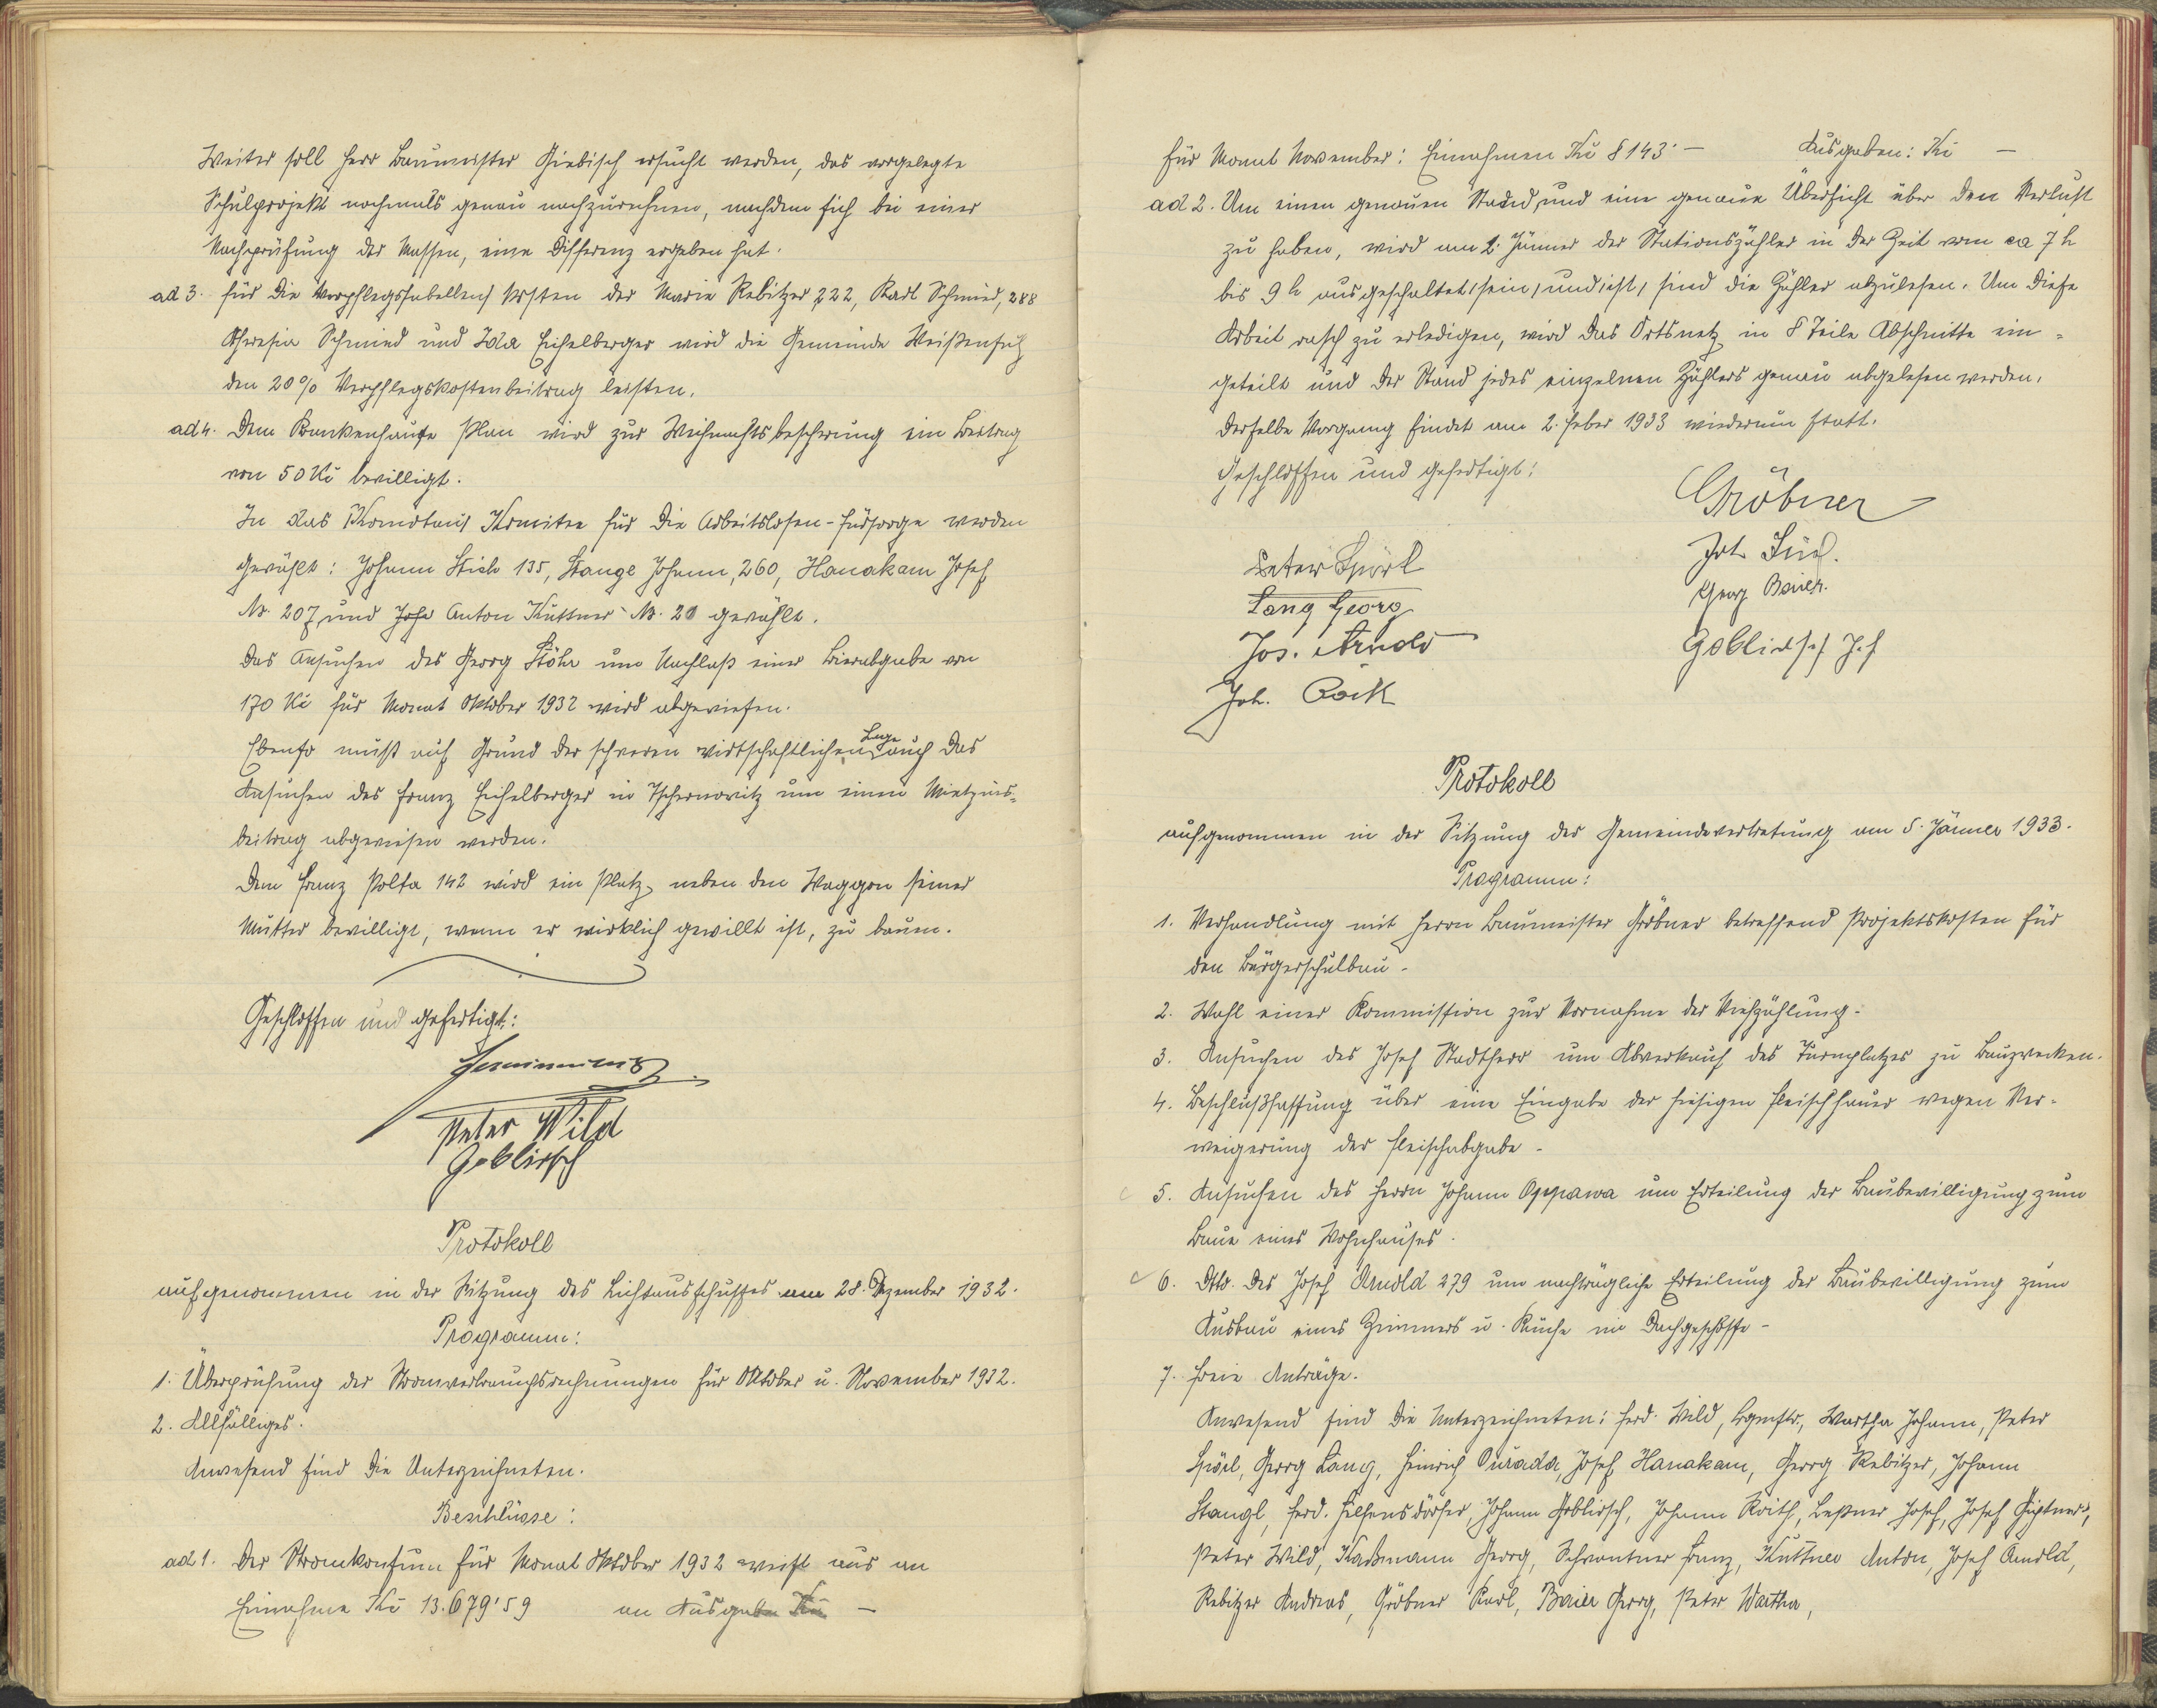 Weiter soll Herr Baumeister Giebisch ersucht werden, das vorgelegte
Schulprojekt nochmals genau nachzurechnen, nachdem sich bei einer
Nachprüfung der Massen, eine Differenz ergeben hat.
ad 3. Für die Verpflegs kosten der Marie Rebitzer 222, Karl Schmied, 288
Theresia Schmied und Ida Eichelberger wird die Gemeinde
den 20% Verpflegskostenbeitrag leisten.
ad 4. Dem Krankenhause Plan wird zur Weihnachtsbescherung ein Beitrag
von 50 Kč bewilligt.
In das Komitee für die Arbeitslosen-Fürsorge werden
gewählt: Johann Stich 135, Stangl Johann, 260, Hanakam Josef
Nr. 207, und Anton Küttner Nr. 20 gewählt.
Das Ansuchen des Georg Stöhr um Nachlaß einer Bierabgabe von
170 Kč für Monat Oktober 1932 wird abgewiesen.
Ebenso muß auf Grund der schweren wirtschaftlichen Lage auch das
Ansuchen des Franz Eichelberger in Tschernowitz um einen Mietzins-
beitrag abgewiesen werden.
Dem Franz Polta 142 wird ein Platz, neben den Waggon seiner
Mutter bewilligt, wenn er wirklich gewillt ist, zu bauen.
Geschlossen und gefertigt:
Peter Wild
Goblirsch
Protokoll
aufgenommen in der Sitzung des Lichtausschusses am 28. Dezember 1932.
Programm:
1. Überprüfung der Stromverbrauchsrechnungen für Oktober u. November 1932.
2. Allfälliges.
Anwesend sind die Unterzeichneten.
Beschlüsse:
ad 1. Der Stromkonsum für Monat Oktober 1932 weist aus an
Einnahme Kč 13.679'59 an Ausgaben Kč —
Für Monat November: Einnahmen Kč 8143·— Ausgaben: Kč —
ad 2. Um einen genauen Stand, und eine genaue Übersicht über den Verlust
zu haben, wird am 2. Jänner der Stationszähler in der Zeit von ca 7 h
bis 9 h ausgeschaltet sein, und ist, sind die Zähler abzulesen. Um diese
Arbeit rasch zu erledigen, wird das Ortsnetz in 8 Teile Abschnitte ein-
geteilt und der Stand jedes einzelnen Zählers genau abgelesen werden.
Derselbe Vorgang findet am 2. Feber 1933 wiederum statt.
Geschlossen und gefertigt:
Gröbner
Peter Spörl
Lang Georg
Georg Baier.
Jos. Arnold
Goblirsch Jof
Joh. Roith
Protokoll
aufgenommen in der Sitzung der Gemeindevertretung am 5. Jänner 1933.
Programm:
1. Verhandlung mit Herrn Baumeister Gröbner betreffend Projektskosten für
den Bürgerschulbau.
2. Wahl einer Kommission zur Vornahme der Viehzählung.
3. Ansuchen des Josef Stadtherr um Abverkauf des Turnplatzes zu Bauzwecken.
4. Beschlußfassung über eine Eingabe der hiesigen Fleischhauer wegen Ver-
weigerung der Fleischabgabe.
5. Ansuchen des Herrn Johann Oppawa um Erteilung der Baubewilligung zum
Baue eines Wohnhauses.
6. Dtto. des Josef Arnold 279 um nachträgliche Erteilung der Baubewilligung zum
Ausbau eines Zimmers u. Küche im Dachgeschosse.
7. Freie Anträge.
Anwesend sind die Unterzeichneten: Ferd. Wild, Bgmstr., Wartha Johann, Peter
Spörl, Georg Lang, Heinrich Durada, Josef Hanakam, Georg Rebitzer, Johann
Stangl, Ferd. Hilfensdörfer, Johann Goblirsch, Johann Roith, Leßner Josef, Josef
Peter Wild, Kadmann Georg, Schwantner Franz, Küttner Anton, Josef Arnold,
Rebitzer Andreas, Gröbner Karl, Baier Georg, Peter Wartha,